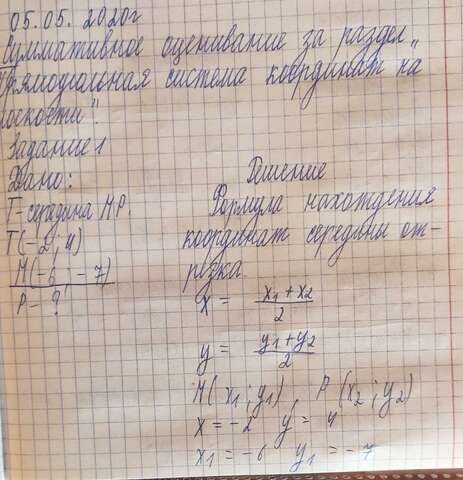 05.05.2020г
Суммативное оценивание за раздел „
рямоугольная система координат на
лоскости".
Задание 1
Дано:
T-середина MP.
T(-2; 4)
M(-6; -7)
P - ?
Решение
Формула нахождения
координат середины от-
резка.
x = x1 + x2 / 2
y = y1 + y2 / 2
M( x1; y1), P (x2; y2)
x = -2 y = 4
x1 = -6 y1 = -7